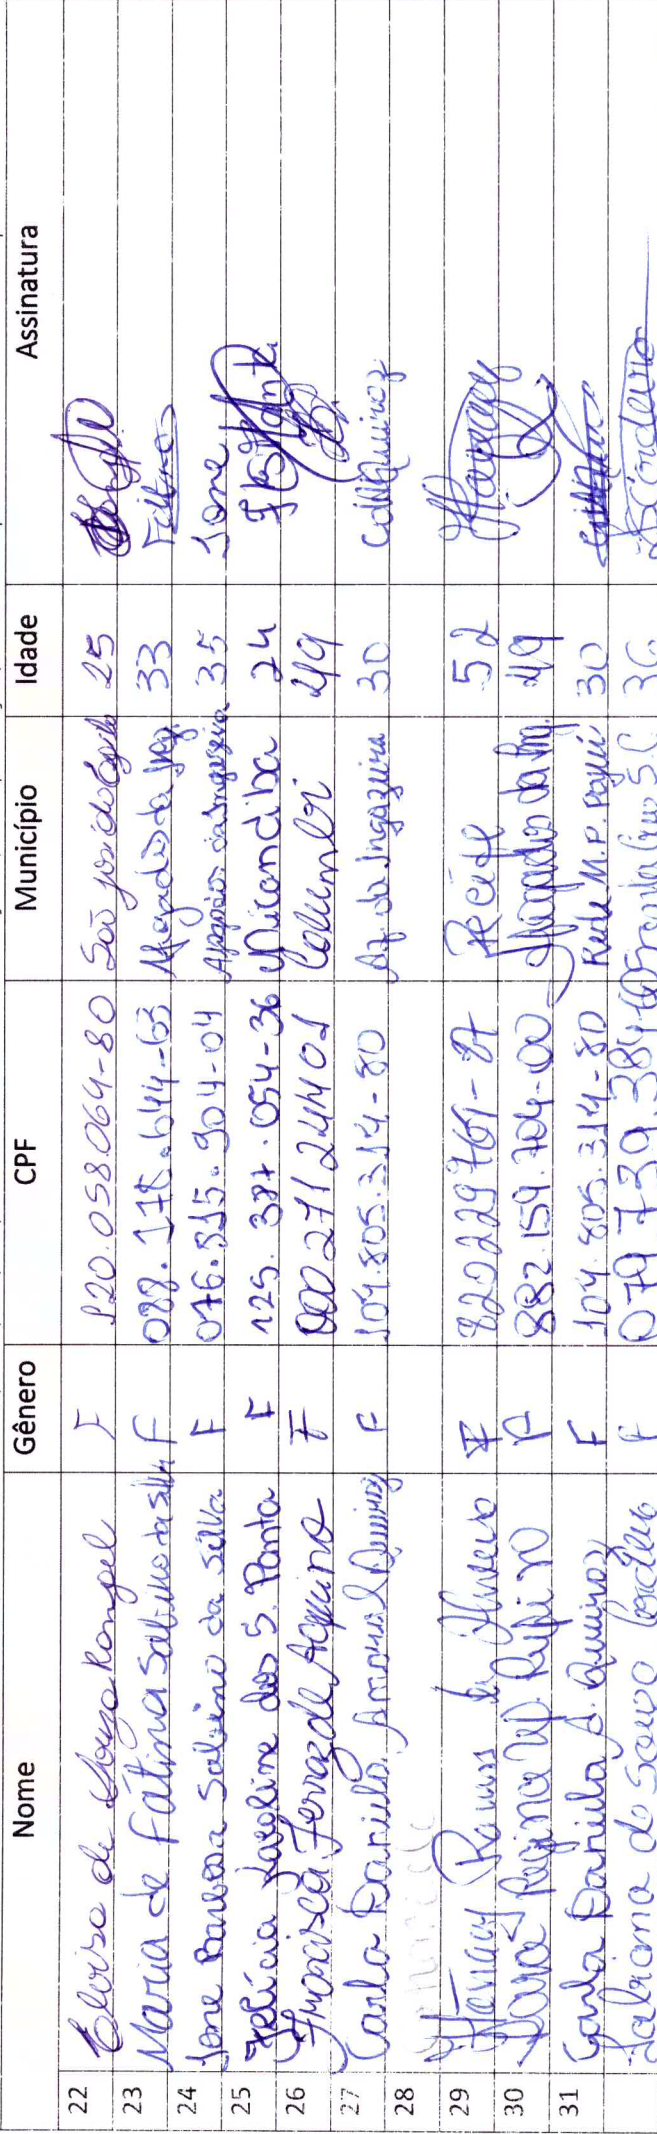 Nome Gênero CPF Município Idade Assinatura
22 Eloisa de Souza Rangel F 120.058.064-80 São José do Egito 25
23 Maria de Fátima Sabino da Silva F 088.178.644-63 Afogados da Ing. 33
24 Jone Barbosa Sabino da Silva F 076.815.904-04 Afogados da Ingazeira 35 Jone
25 Felícia Karoline dos S. Panta F 125.387.054-36 Mirandiba 24
26 Francisca Ferraz de Aquino F 00027124401 Calumbi 49
27 Carla Daniela Amaral Queiroz F 104.805.314-80 Af. da Ingazeira 30
28
29 Ramos de F 820229761-87 Recife 52
30 Regina F 882.159.704-00 Afogados da Ing. 49
31 Carla Daniela A. Queiroz F 104.805.314-80 Rede M.P. Pajeú 30
F 079.739.384 Santa Cruz 36